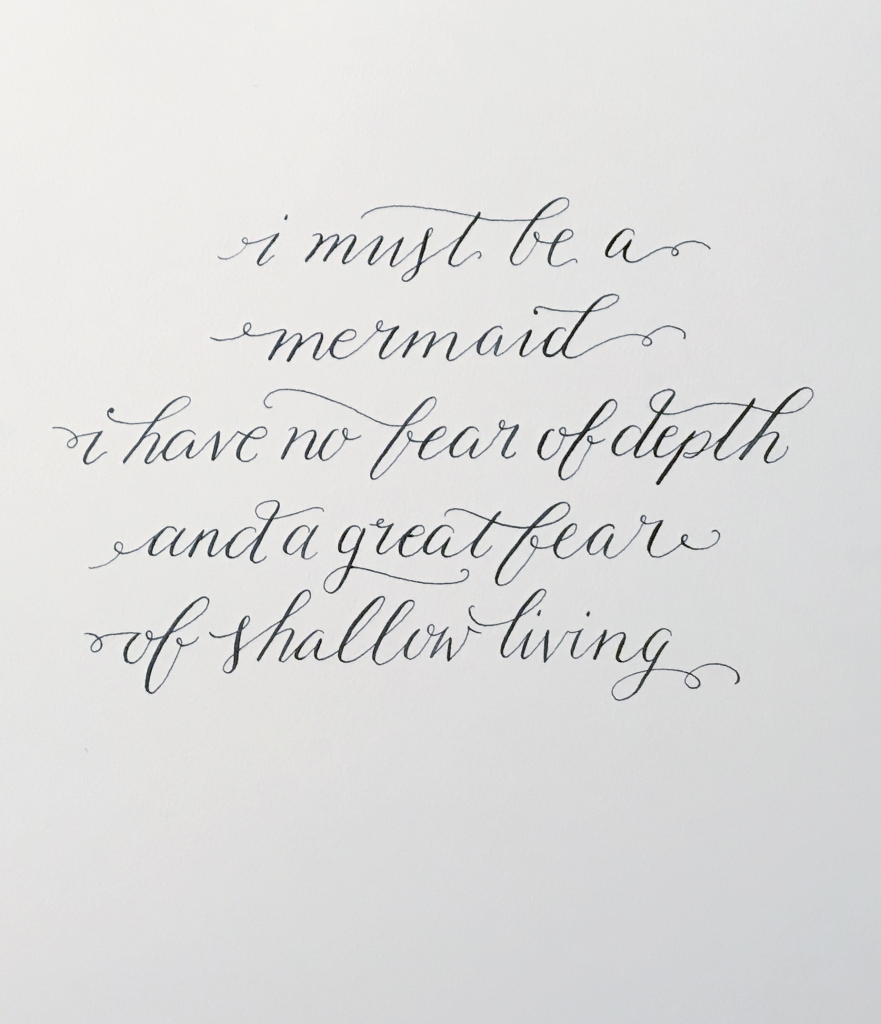 i must be a
mermaid
i have no fear of depth
and a great fear
of shallow living